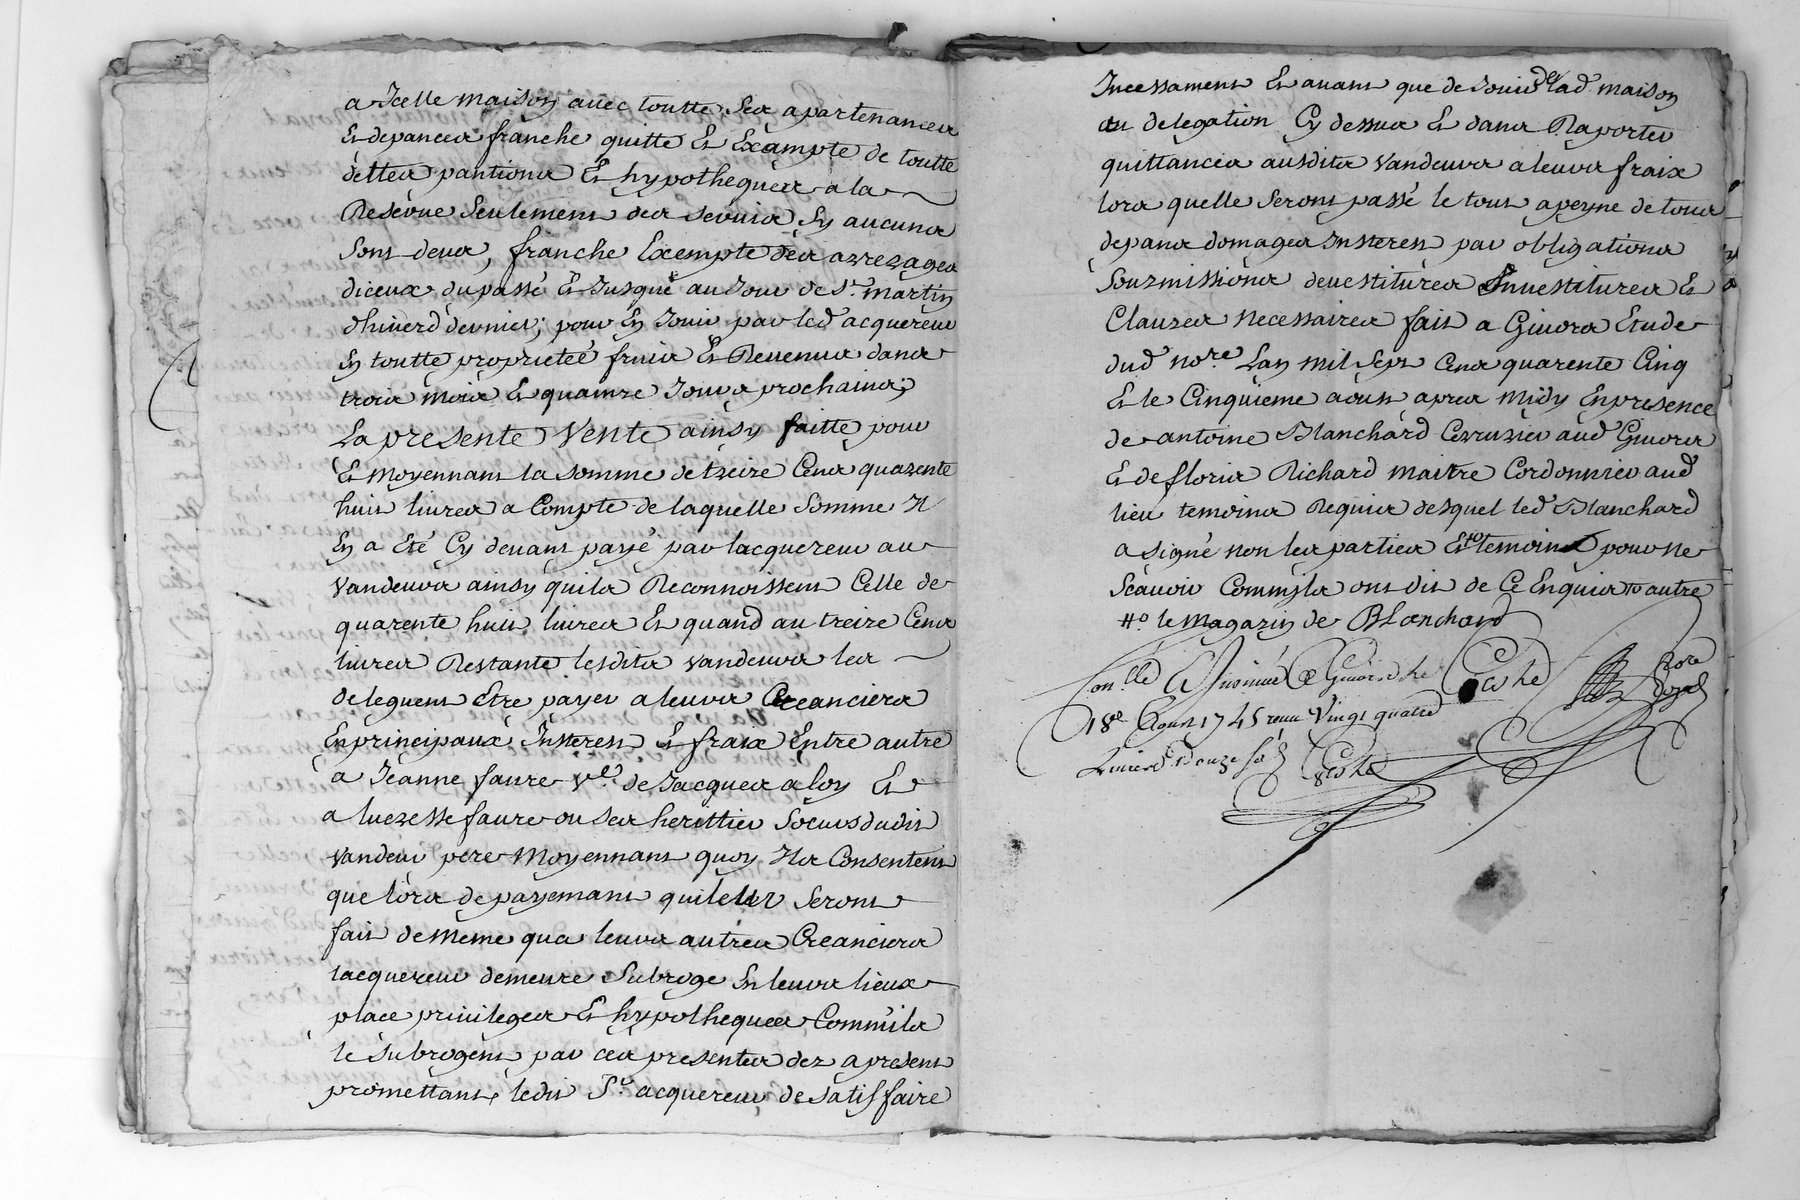 a Jcelle maison avec toutte ses apartenances
Et depances franche quitte Et Exampte de toutte
dettes pantions Et hypotheques a la
Reserve seulement des servis sy aucuns
sont deus, franche Exempte des arrerages
diceux du passé Et Jusque au Jour de St. martin
dhiverd dernier; pour En Jouir par led acquereur
En toutte proprieteé fruis Et Revenus dans
trois mois Et quainze Jours prochains;
La presente Vente ainsy faitte pour
Et Moyennant la somme de treize Cens quarente
huit livres a Compte de laquelle Somme Il
En a Eté Cy devant payé par lacquereur au
vandeurs ainsy quils Reconnoissent Celle de
quarente huit livres Et quand au treize Cens
livres Restante lesdits vandeurs les
deleguent Etre payer a leurs Creanciers
En principaux Jnsterest Et fraix Entre autre
a Jeanne faure Ve. de Jacques aloy Et
a lucresse faure ou ses herittier Soeurs dudit
vandeur pere Moyennant quoy Ils Consentent
que lors de payemant quileur seront
fait de meme qua leurs autres Creanciers
lacquereur demeure Subroge En leurs lieux
place privileges Et hypotheques Comm'ils
le Subrogent par ces presentes dez apresent
promettant ledit Sr. acquereur de satisfaire
Incessament Et avant que de Jouir de lad. maison
au delegation Cy dessus Et dans Raporter
quittances ausdits vandeurs a leurs fraix
lors quelle seront passé le tout apeyne de tous
depans domages Jnsterest par obligations
Souzmissions devestitures Jnvestitures Et
Clauzes necessaires fait a Givors Etude
dud nore. Lan mil Sept Cens quarente Cinq
Et le Cinquieme aoust apres Midy En presence
de antoine Blanchard Cerruzier aud Givors
Et de floris Richard maitre Cordonnier aud
lieu temoins Requis desquel led Blanchard
a signé non les parties Et temoins pour ne
Scavoir Comm'ils ont dit de Ce Enquis autre
le Magazin de Blanchard
Conllé Jnsinué a Givors le
18e Aoust 1745 reçu Vingt quatre
Livres douze sols